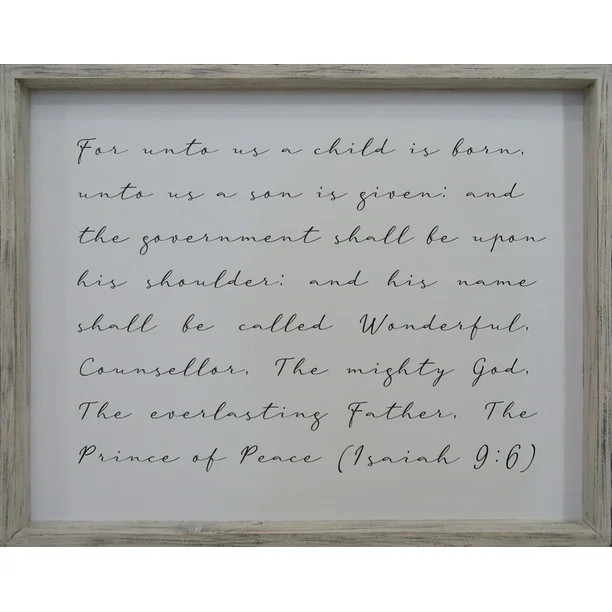 For unto us a child is born,
unto us a son is given: and
the government shall be upon
his shoulder: and his name
shall be called Wonderful,
Counsellor, The mighty God,
The everlasting Father, The
Prince of Peace (Isaiah 9:6)